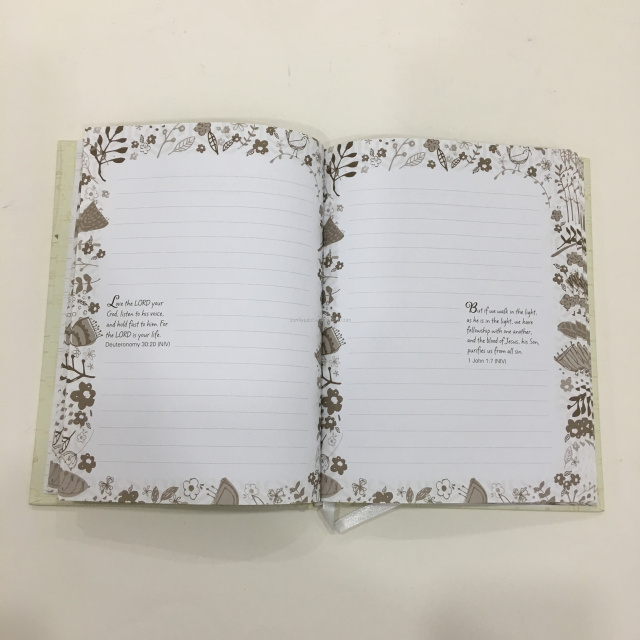 Love the LORD your
God, listen to his voice,
and hold fast to him. For
the LORD is your life.
Deuteronomy 30:20 (NIV)
But if we walk in the light,
as he is in the light, we have
fellowship with one another,
and the blood of Jesus, his Son,
purifies us from all sin.
1 John 1:7 (NIV)